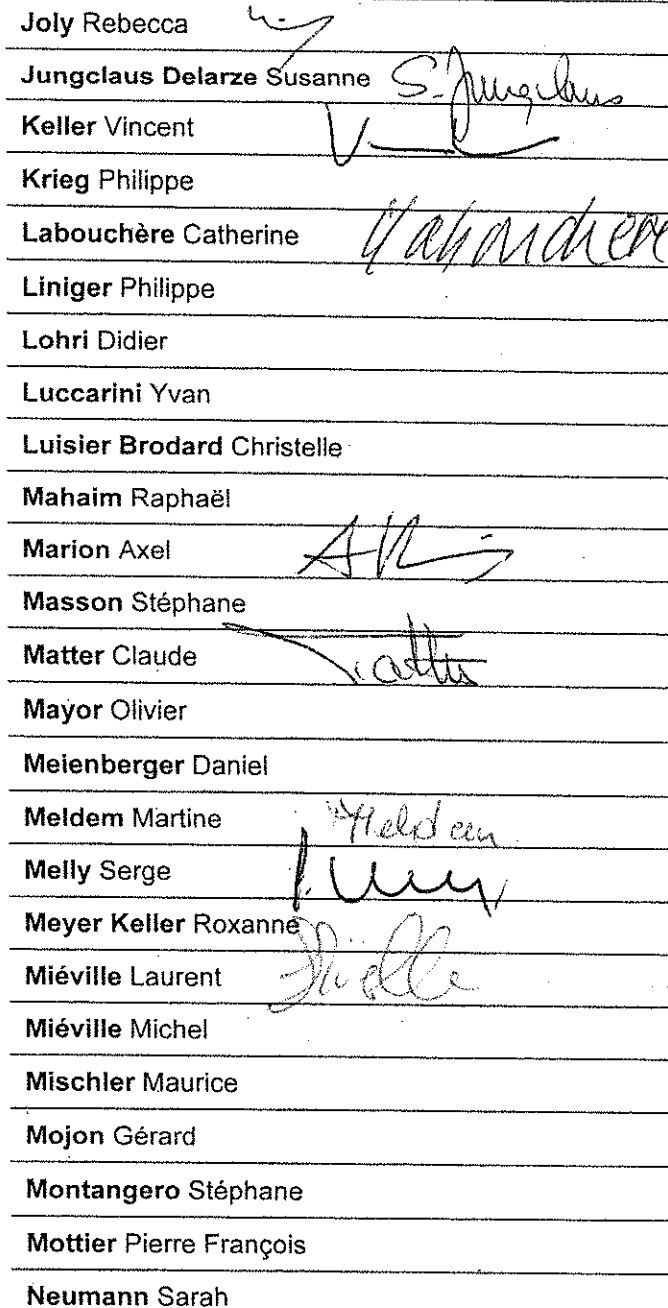 Joly Rebecca
Jungclaus Delarze Susanne S. Jungclaus
Keller Vincent
Krieg Philippe
Labouchère Catherine
Liniger Philippe
Lohri Didier
Luccarini Yvan
Luisier Brodard Christelle
Mahaim Raphaël
Marion Axel
Masson Stéphane
Matter Claude
Mayor Olivier
Meienberger Daniel
Meldem Martine Meldem
Melly Serge
Meyer Keller Roxanne
Miéville Laurent
Miéville Michel
Mischler Maurice
Mojon Gérard
Montangero Stéphane
Mottier Pierre François
Neumann Sarah